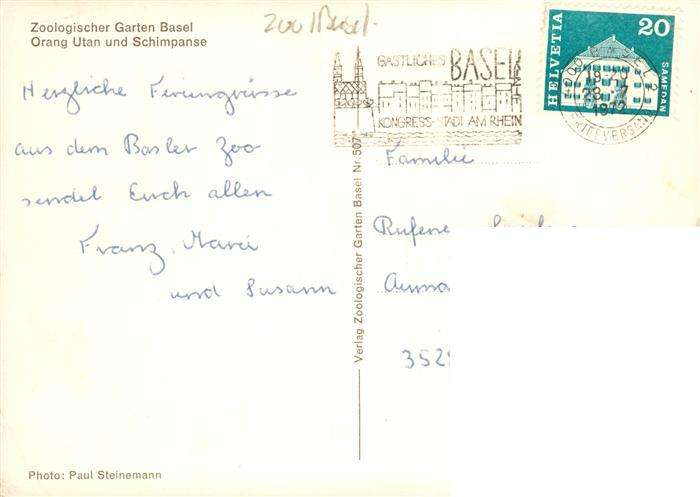 Zoologischer Garten Basel
Orang Utan und Schimpanse
Zoo Basel.
Herzliche Feriengrüsse
aus dem Basler Zoo
sendet Euch allen
Franz, Marei
und Susann
Photo: Paul Steinemann
Verlag Zoologischer Garten Basel Nr. 507
GASTLICHES BASEL
KONGRESS-STADT AM RHEIN
HELVETIA
20
SAMEDAN
BASEL 2
19-20
28. 7
1972
BRIEFVERSAND
Familie
Rufene
352